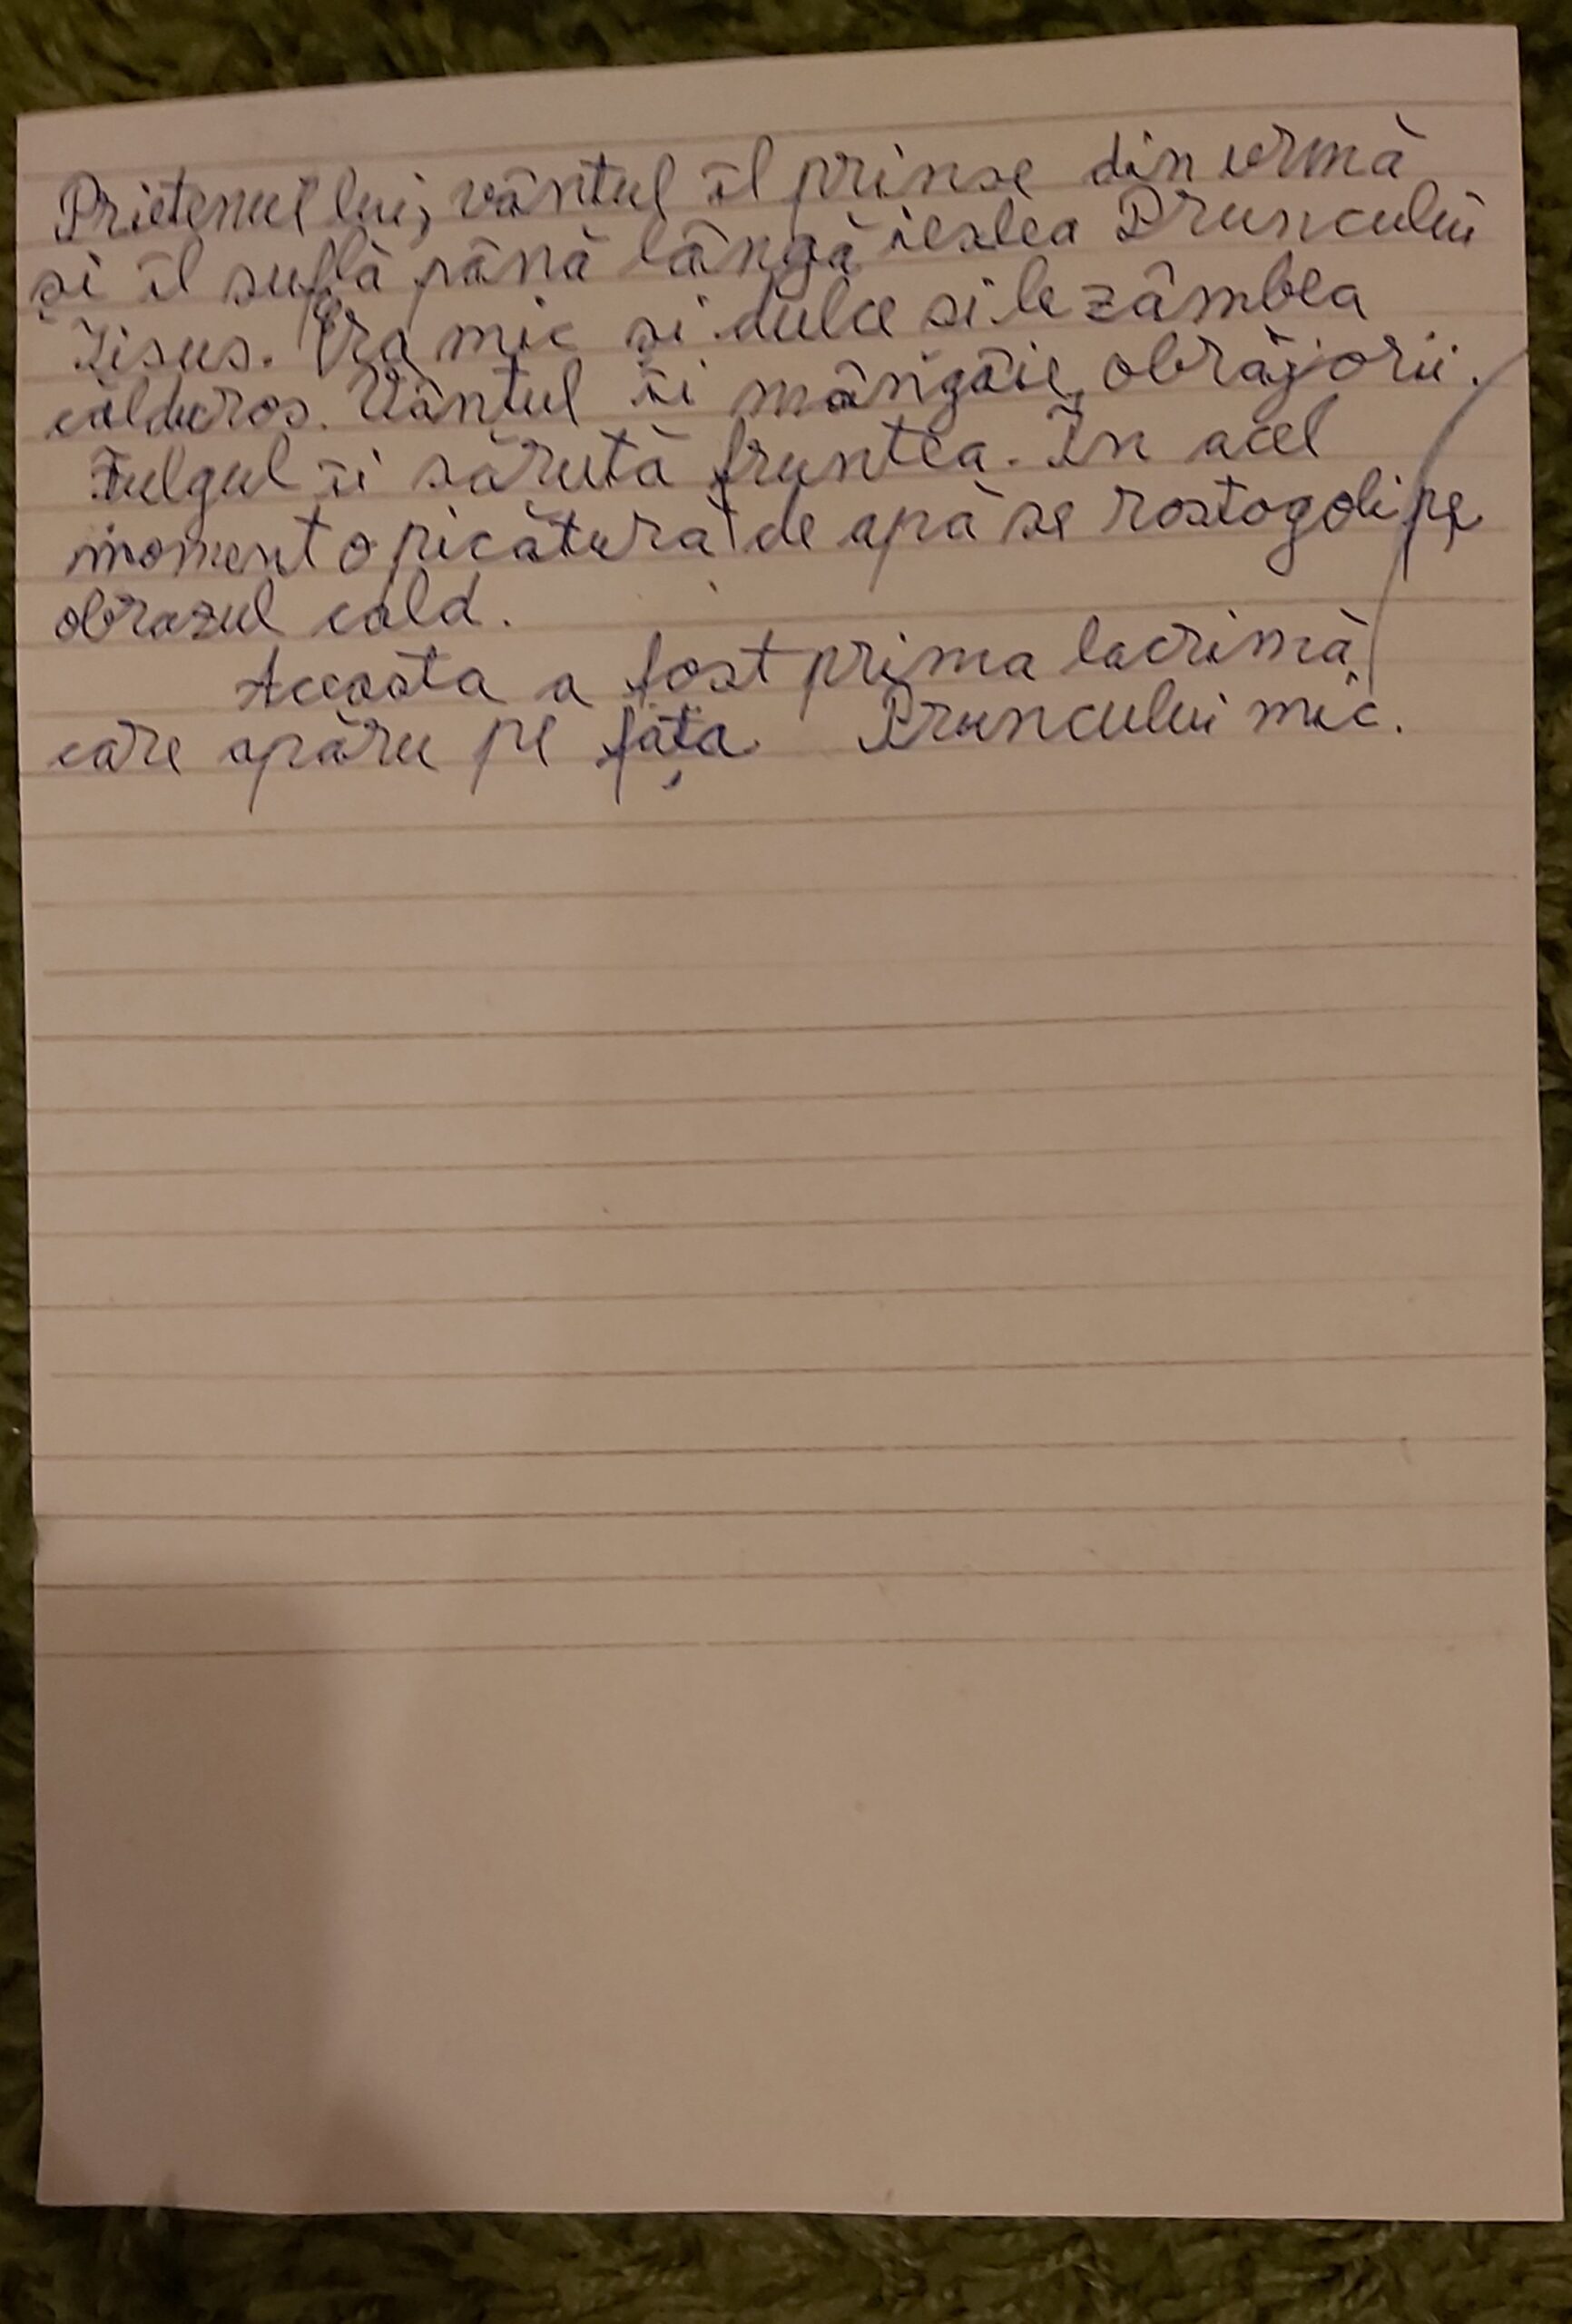 Prietenul lui, vântul îl prinse din urmă
și îl suflă până lângă ieslea Pruncului
Iisus. Era mic si dulce si le zâmbea
călduros. Vântul îi mângâie obrăjorii.
Fulgul îi sărută fruntea. În acel
moment o picătură de apă se rostogoli pe
obrazul cald.
Aceasta a fost prima lacrimă
care apăru pe fața Pruncului mic.